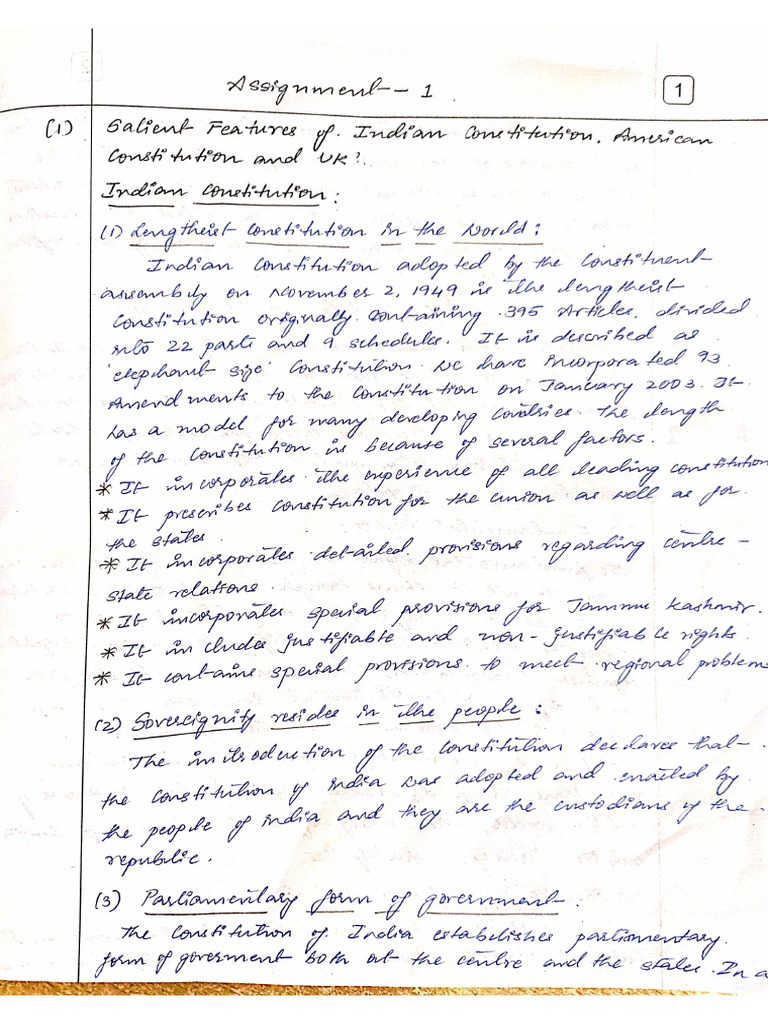 Assignment - 1
1
(1) Salient Features of Indian Constitution, American
Constitution and UK?
Indian Constitution:
(1) Lengthiest Constitution in the World:
Indian Constitution adopted by the Constituent
assembly on November 2, 1949 is the lengthiest
Constitution originally containing 395 Articles, divided
into 22 parts and 9 schedules. It is described as
'elephant size' Constitution. We have incorporated 93
Amendments to the Constitution on January 2003. It
has a model for many developing Countries. The length
of the Constitution is because of several factors.
* It incorporates the experience of all leading constitution
* It prescribes constitution for the union as well as for
the states.
* It incorporates detailed provisions regarding centre -
state relations.
* It incorporates special provisions for Jammu Kashmir.
* It includes justifiable and non-justifiable rights.
* It contains special provisions to meet regional problems
(2) Sovereignity resides in the people:
The introduction of the constitution declares that
the constitution of india was adopted and enacted by
the people of india and they are the custodians of the
republic.
(3) Parliamentary form of government:
The Constitution of India establishes parliamentary
form of goverment both at the centre and the states. In a